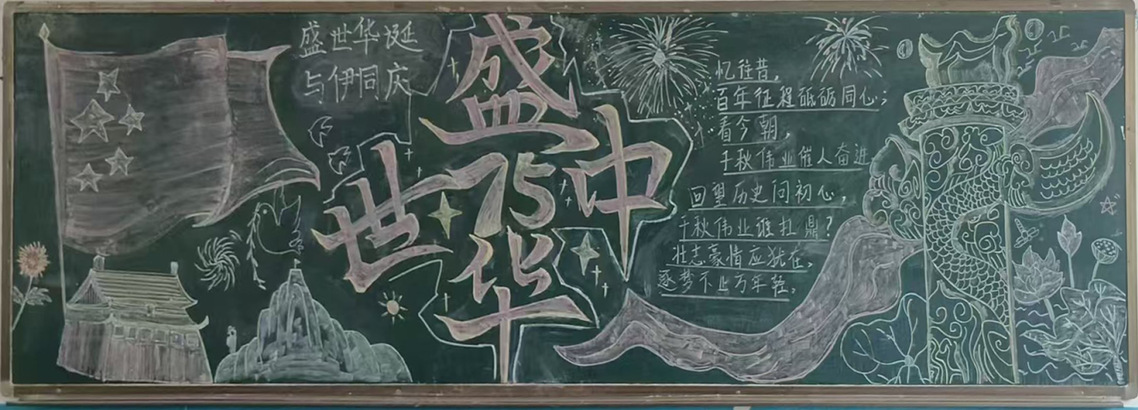 盛世华诞
与伊同庆
盛
世75中
华
忆往昔，
百年征程砥砺同心；
看今朝，
千秋伟业催人奋进
回望历史问初心，
千秋伟业谁扛鼎？
壮志豪情应犹在，
逐梦不止万年轻。